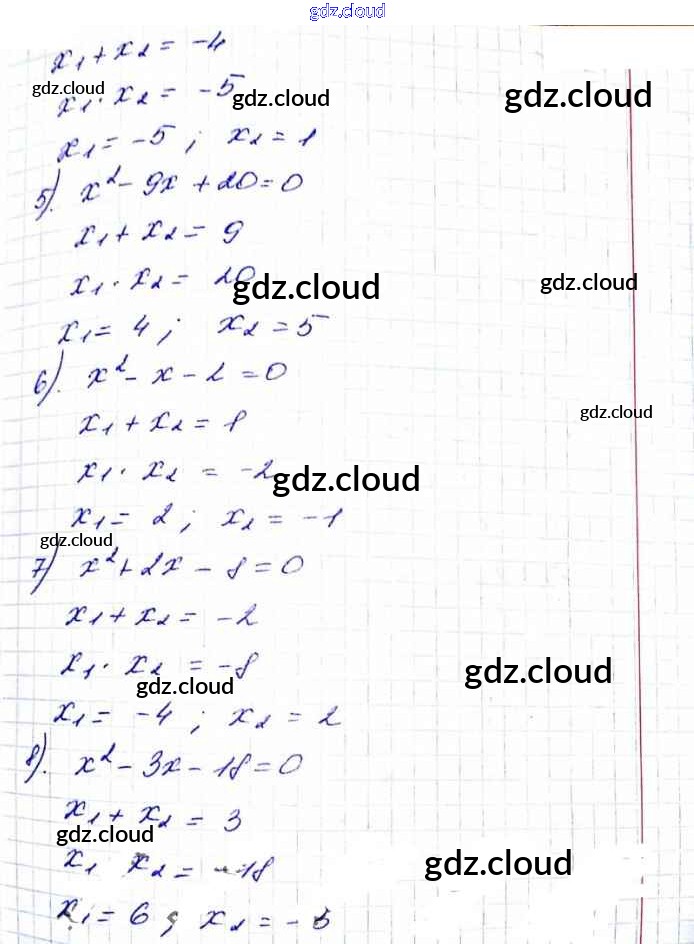 gdz.cloud
x₁ + x₂ = -4
gdz.cloud
x₁ · x₂ = -5
gdz.cloud
gdz.cloud
x₁ = -5 ; x₂ = 1
5). x² - 9x + 20 = 0
x₁ + x₂ = 9
x₁ · x₂ = 20
gdz.cloud
gdz.cloud
x₁ = 4 ; x₂ = 5
6). x² - x - 2 = 0
gdz.cloud
x₁ + x₂ = 1
x₁ · x₂ = -2
gdz.cloud
x₁ = 2 ; x₂ = -1
gdz.cloud
7) x² + 2x - 8 = 0
x₁ + x₂ = -2
x₁ · x₂ = -8
gdz.cloud
gdz.cloud
x₁ = -4 ; x₂ = 2
8). x² - 3x - 18 = 0
x₁ + x₂ = 3
gdz.cloud
x₁ x₂ = -18
gdz.cloud
x₁ = 6 ; x₂ = -